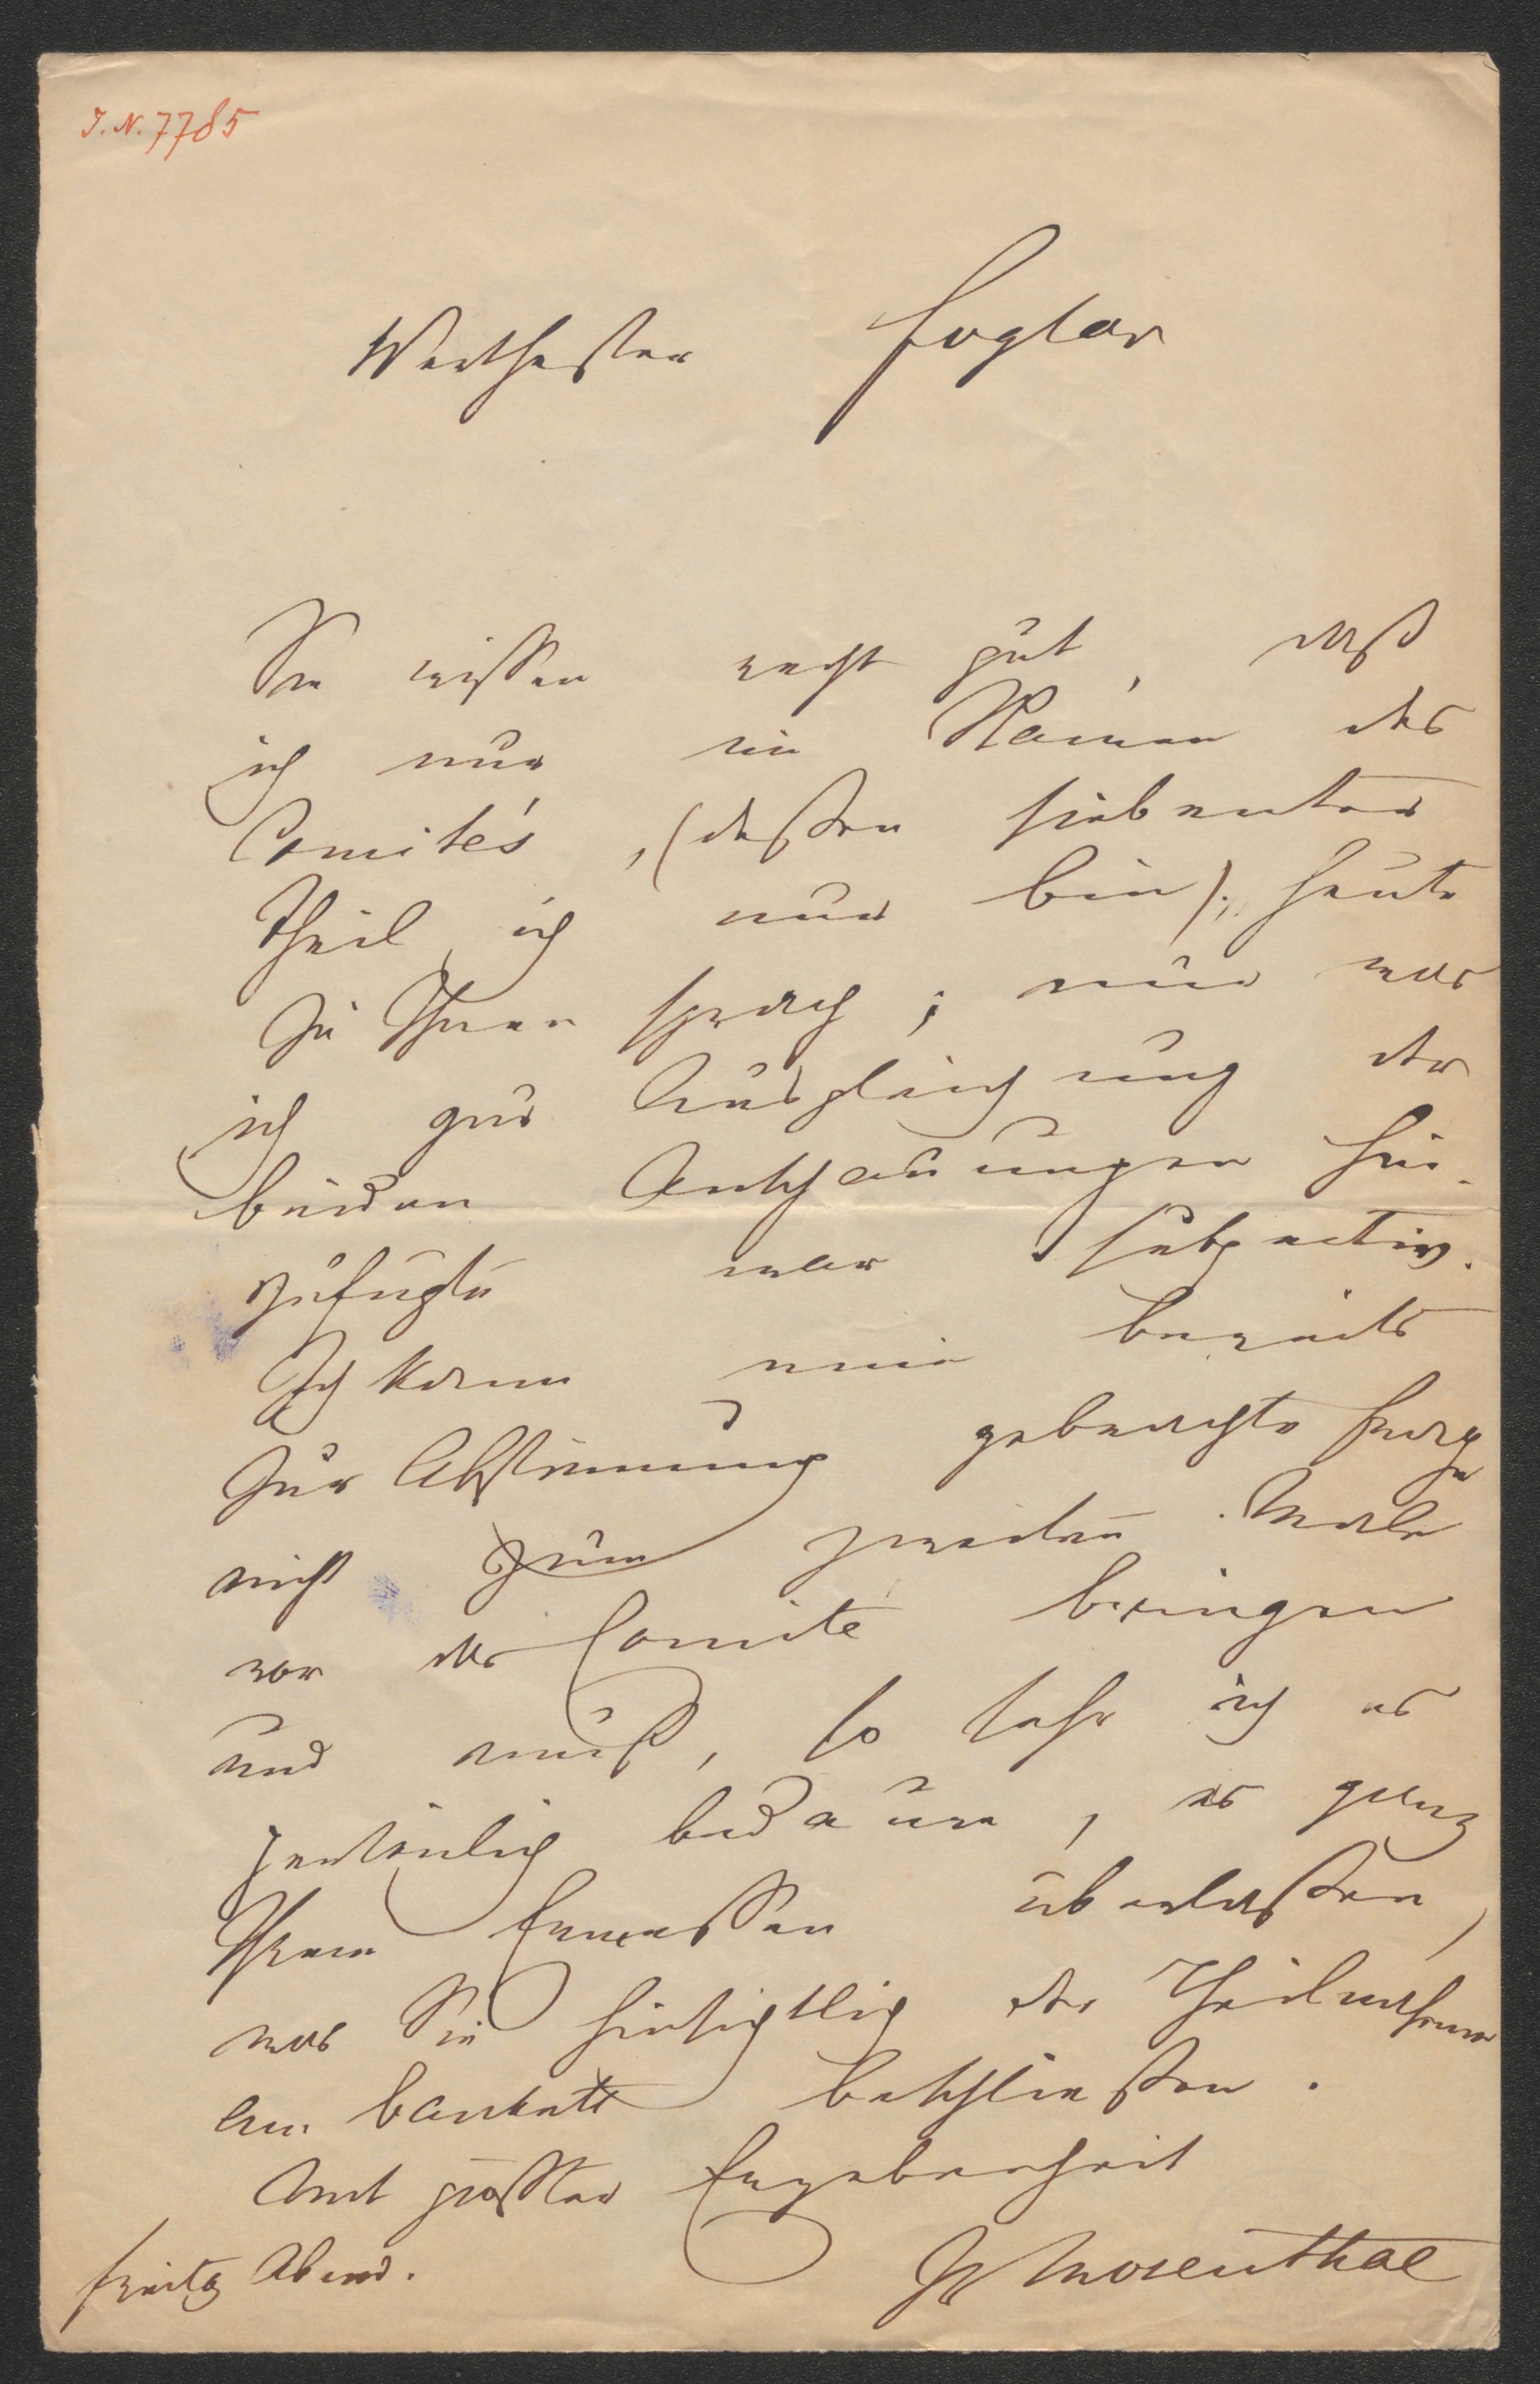 I. N. 7785
Werthester Foglar
Sie wissen recht gut, daß
ich nur im Namen des
Comités, (dessen siebenter
Theil ich nur bin), heute
zu Ihnen sprach; nur was
ich zur Ausgleichung der
beiden Anschauungen hin-
zufügte war subjectiv.
Ich kann eine bereits
zur Abstimmung gebrachte Frage
nicht zum zweiten Male
vor das Comité bringen
und muß, so sehr ich es
persönlich bedaure, es ganz
Ihrem Ermessen überlassen,
was Sie hinsichtlich der Theilnahme
am Bankett beschließen.
Mit größter Ergebenheit
Freitag Abend.
Mosenthal